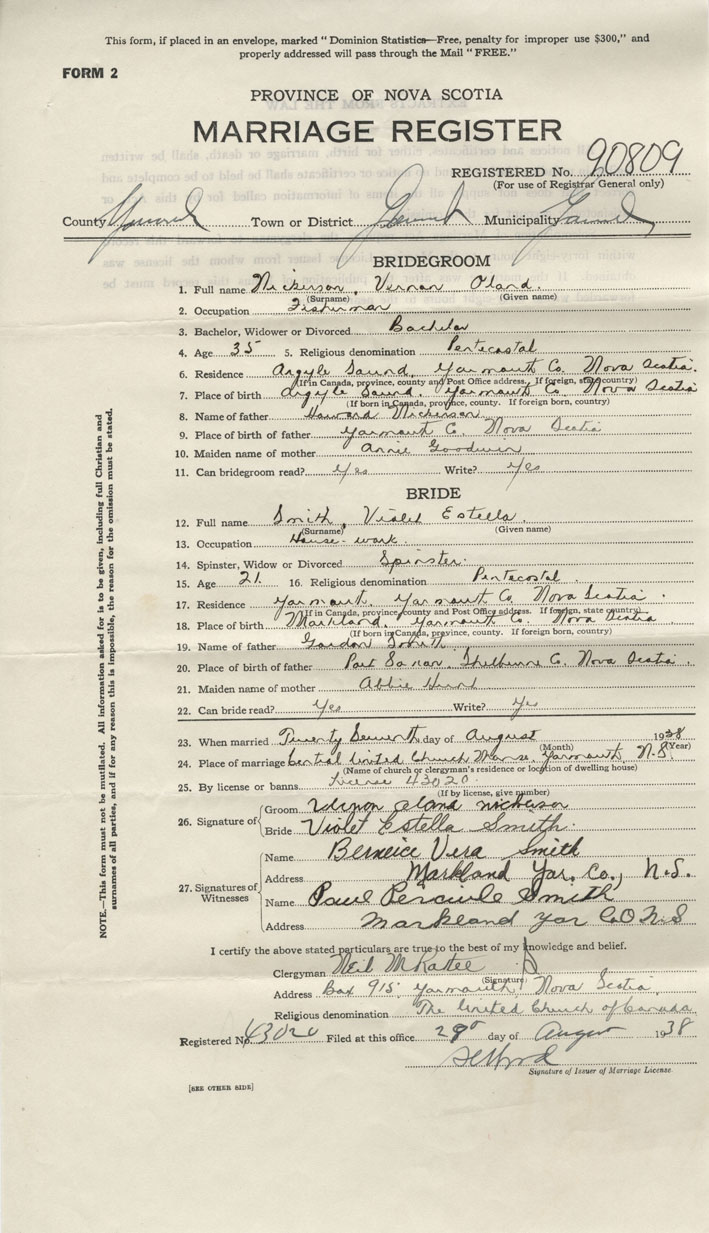 This form, if placed in an envelope, marked "Dominion Statistics—Free, penalty for improper use $300," and
properly addressed will pass through the Mail "FREE."
FORM 2
PROVINCE OF NOVA SCOTIA
MARRIAGE REGISTER
REGISTERED No. 90809
(For use of Registrar General only)
County Town or District Municipality
BRIDEGROOM
1. Full name Nickerson, Vernon Oland.
(Surname) (Given name)
2. Occupation Fisherman
3. Bachelor, Widower or Divorced Bachelor
4. Age 35 5. Religious denomination Pentecostal
6. Residence Argyle Sound, Yarmouth Co. Nova Scotia.
(If in Canada, province, county and Post Office address. If foreign, state country)
7. Place of birth Argyle Sound. Yarmouth Co. Nova Scotia
(If born in Canada, province, county. If foreign born, country)
8. Name of father Howard Nickerson
9. Place of father Yarmouth Co. Nova Scotia
10. Maiden name of mother Annie Goodwin
11. Can bridegroom read? Yes Write? Yes
BRIDE
12. Full name Smith, Violet Estella.
(Surname) (Given name)
13. Occupation House-work.
14. Spinster, Widow or Divorced Spinster.
15. Age 21. 16. Religious denomination Pentecostal.
17. Residence Yarmouth. Yarmouth Co. Nova Scotia.
(If in Canada, province, county and Post Office address. If foreign, state country)
18. Place of birth Markland. Yarmouth Co. Nova Scotia
(If born in Canada, province, county. If foreign born, country)
19. Name of father Gordon Smith
20. Place of birth of father Port Shelburne Co. Nova Scotia.
21. Maiden name of mother Abbie
22. Can bride read? Yes Write? Yes
23. When married Twenty Seventh day of August 1938
(Month) (Year)
24. Place of marriage Central United Church Manse. Yarmouth, N.S.
(Name of church or clergyman's residence or location of dwelling house)
25. By license or banns. License 43020
(If by license, give number)
26. Signature of Groom Vernon Oland Nickerson
Bride Violet Estella Smith.
27. Signatures of Witnesses
Name Berneice Vera Smith
Address Markland Yar. Co., N.S.
Name Paul Smith
Address Markland Yar Co N.S
I certify the above stated particulars are true to the best of my knowledge and belief.
Clergyman Neil
(Signature)
Address Box 915, Yarmouth, Nova Scotia
Religious denomination The United Church of Canada
Registered No. 43020 Filed at this office 29 day of August 1938
Signature of Issuer of Marriage License.
[SEE OTHER SIDE]
NOTE.—This form must not be mutilated. All information asked for is to be given, including full Christian and
surnames of all parties, and if for any reason this is impossible, the reason for the omission must be stated.